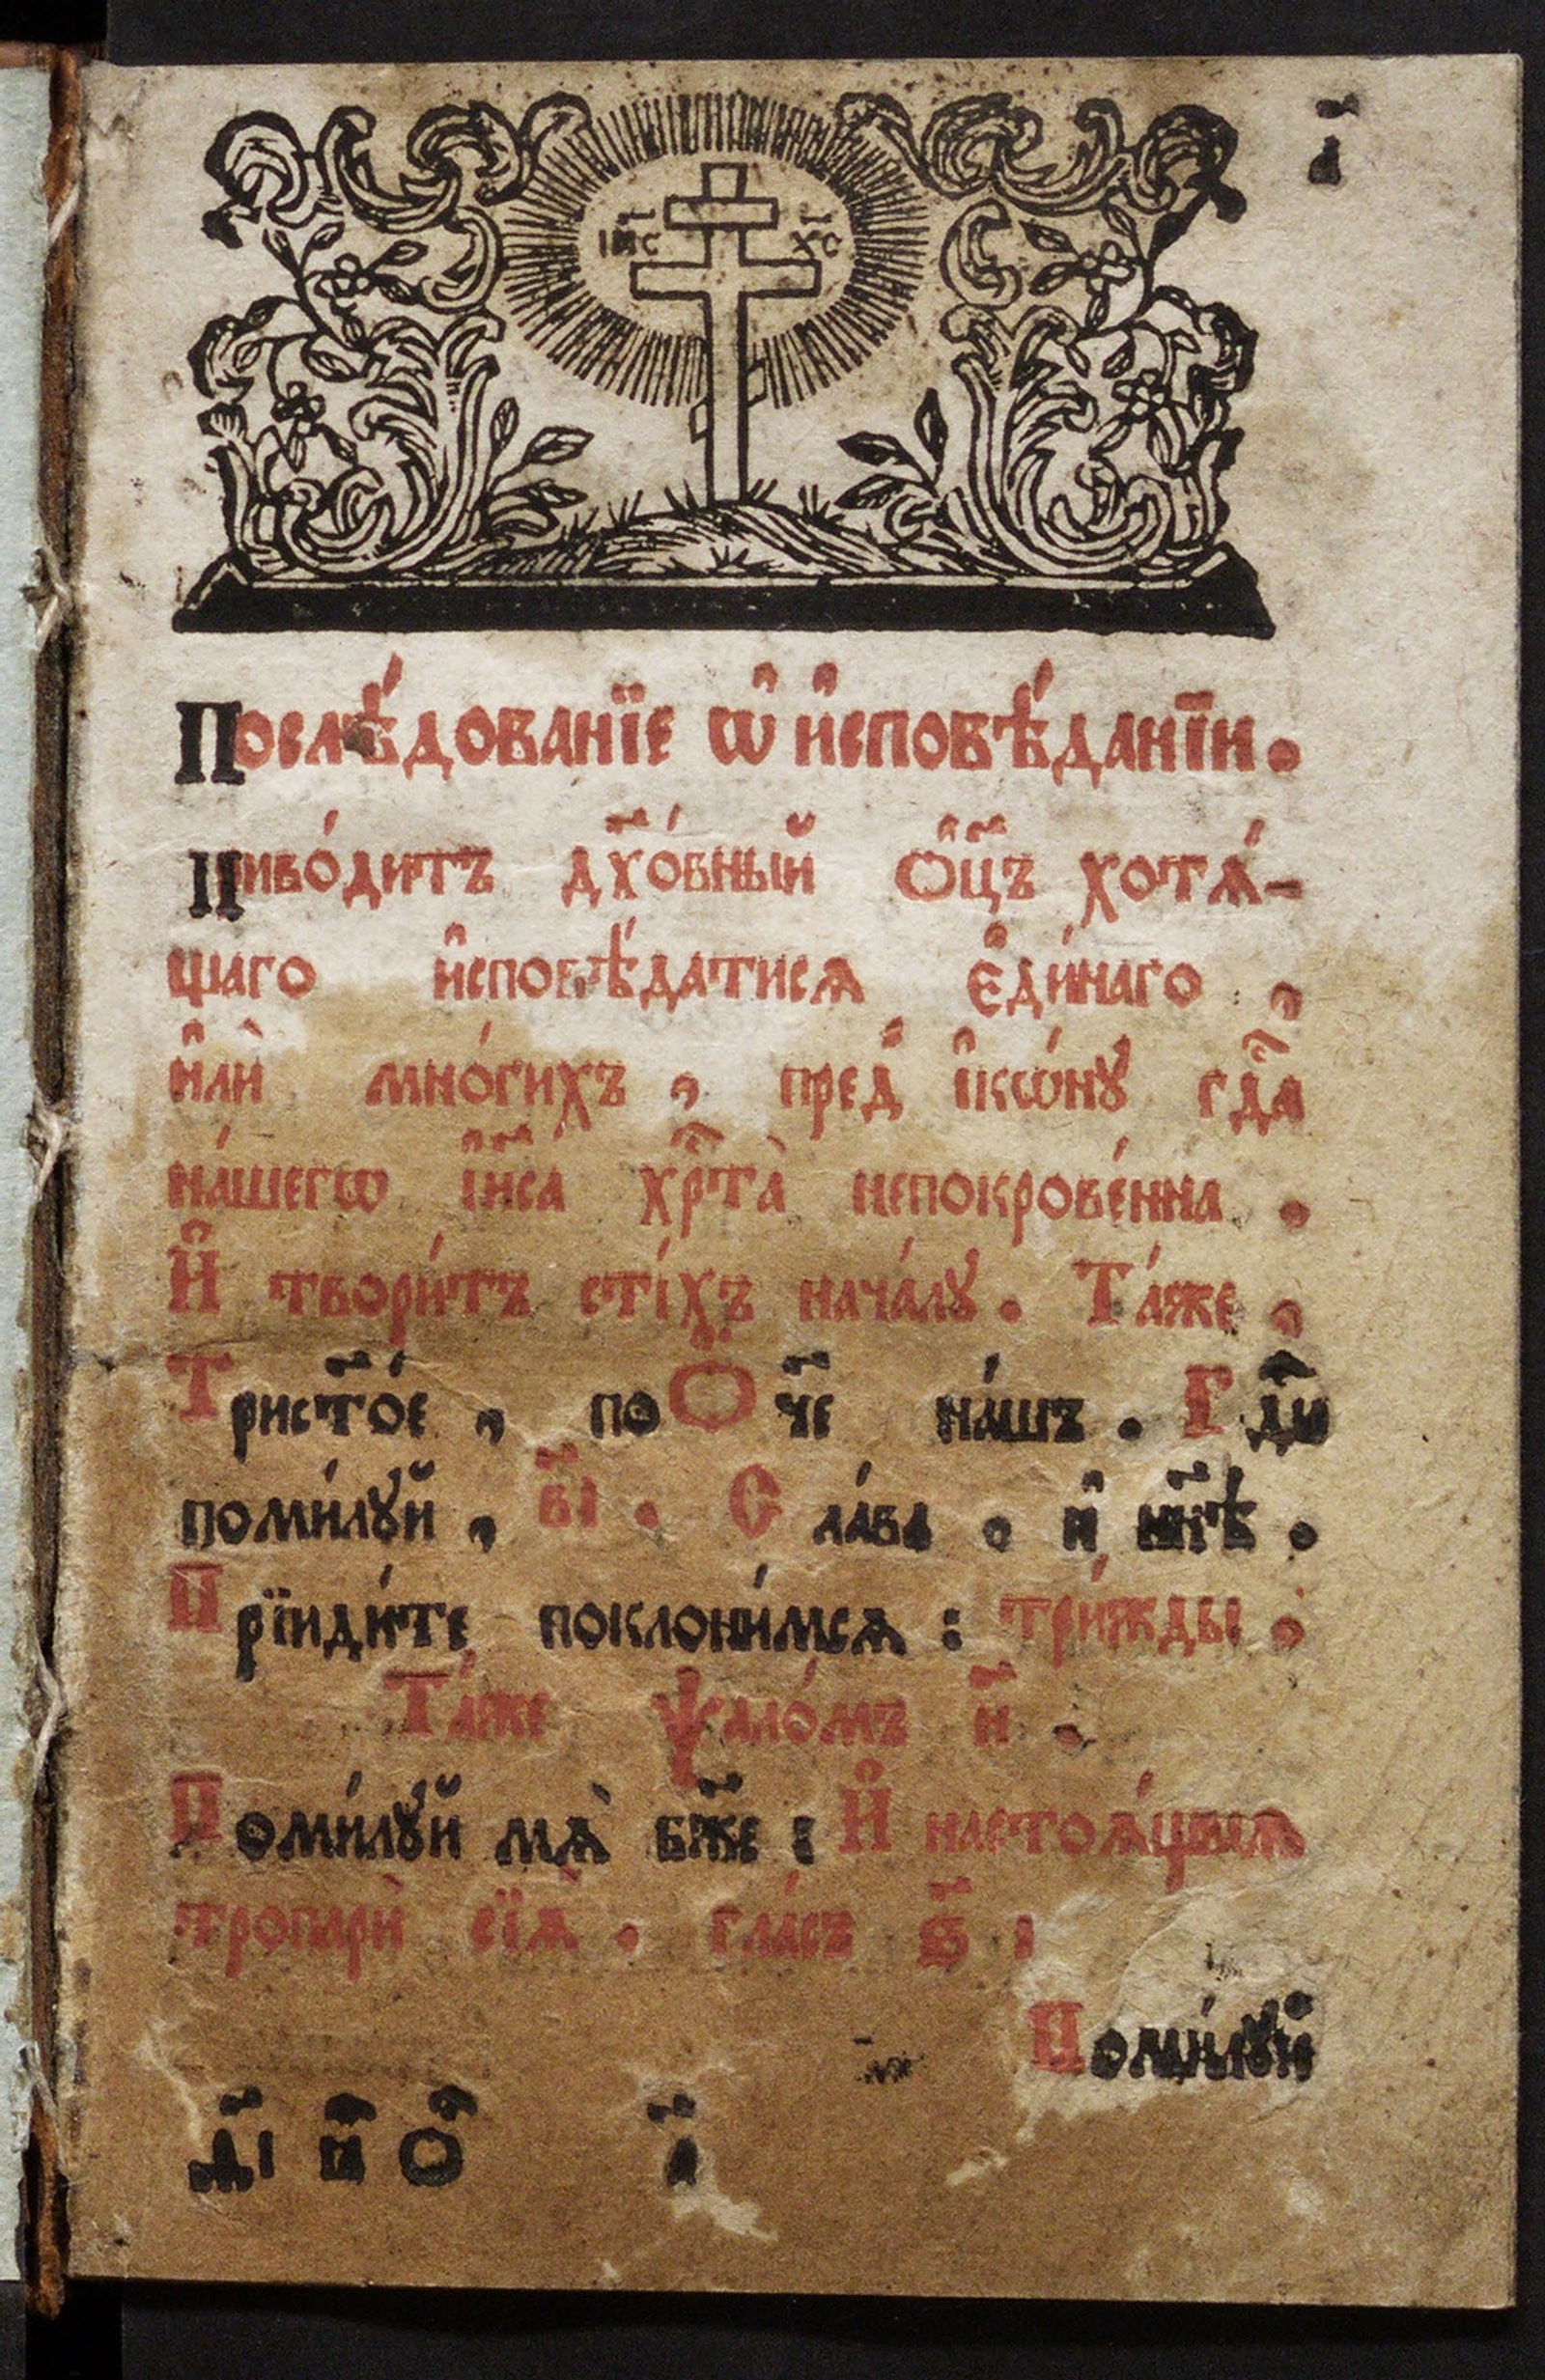 а҃
І҃ИС Х҃С
Послѣ́дованїе ѡ҆ и҆сповѣ́данїи.
Приво́дитъ дх҃о́вный ѻ҆ц҃ъ хотѧ́-
щаго и҆сповѣ́датисѧ є҆ди́наго ,
и҆лѝ мно́гихъ , пред̾ і҆кѡ́нꙋ гдⷭ҇а
на́шегѡ і҆и҃са хрⷭ҇та̀ непокрове́нна .
И҆ твори́тъ сті́хъ нача́лꙋ. Та́же ,
Трист҃о́е , по Ѻ҆ч҃е на́шъ . Гдⷭ҇и
поми́лꙋй , в҃і . Сла́ва . и҆ нн҃ѣ .
Прїиди́те поклони́мсѧ : три́жды .
Та́же ѱало́мъ н҃ .
Поми́лꙋй мѧ̀ бж҃е : И҆ настоѧ́щыѧ
тропарѝ сїѧ̀ . гла́съ ѕ҃ :
Поми́лꙋй
д҃і н҃ ѻ҃ а҃